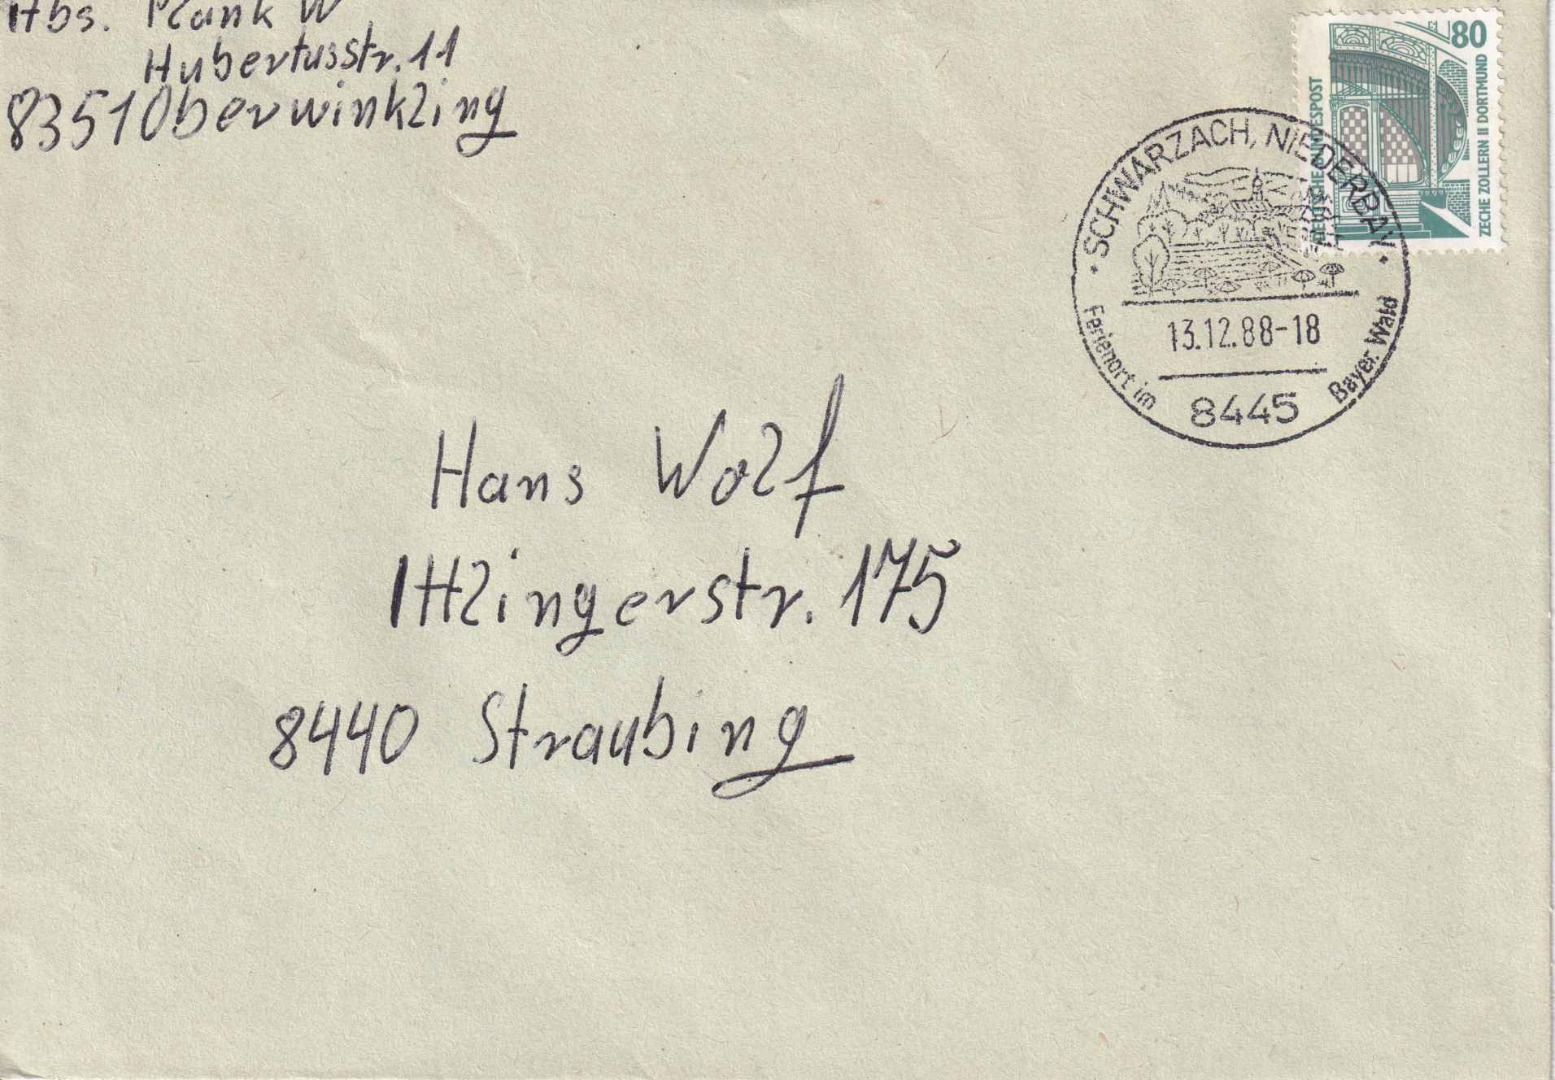 Abs. Plank W
Hubertusstr. 11
8351 Oberwinkling
80
DEUTSCHE BUNDESPOST
ZECHE ZOLLERN II DORTMUND
SCHWARZACH, NIEDERBAY
13.12.88-18
Ferienort im
8445
Bayer. Wald
Hans Wolf
Ittlingerstr. 175
8440 Straubing